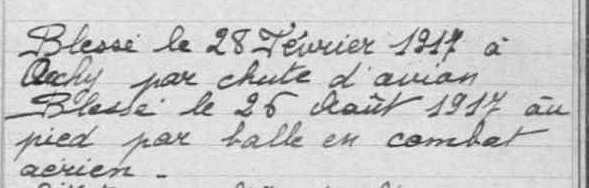 Blessé le 28 Février 1917 à
par chute d'avion
Blessé le 26 Août 1917 au
pied par balle en combat
aérien -